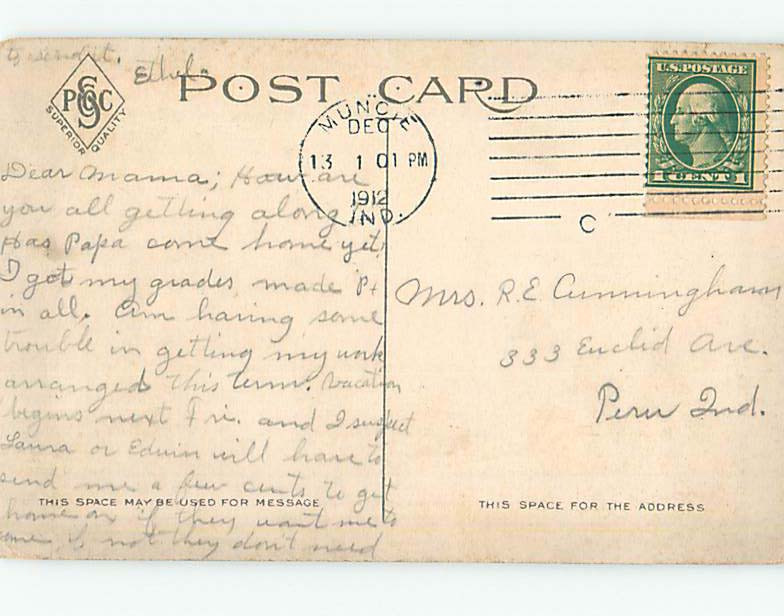 to send it.
Ethel.
POST CARD
P S C
SUPERIOR QUALITY
MUNCIE
DEC
13 1 01 PM
1912
IND.
C
U.S. POSTAGE
1 CENT 1
Dear Mama; How are
you all getting along
Has Papa come home yet.
I got my grades made P+
in all. Am having some
trouble in getting my work
arranged this term. Vacation
begins next Fri. and I suspect
Laura or Edwin will have to
send me a few cents to get
home on if they want me to
come if not they don't need
THIS SPACE MAY BE USED FOR MESSAGE
Mrs. R.E. Cunningham
333 Euclid Ave.
Peru Ind.
THIS SPACE FOR THE ADDRESS